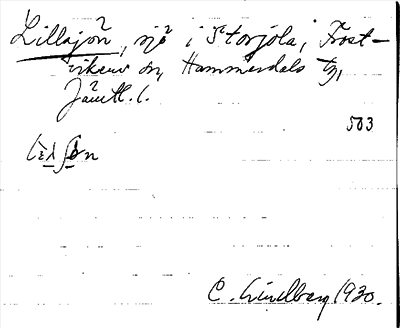 Lillsjön, sjö i Storjola, Frost-
vikens sn, Hammerdals tg,
Jämtl. l.
503
C. Lindberg 1930.